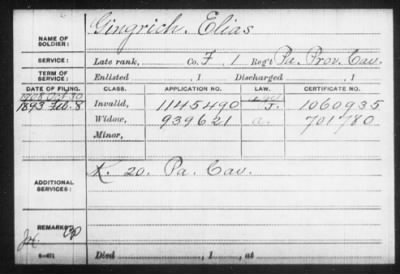 NAME OF SOLDIER: Gingrich, Elias
SERVICE: Late rank, Co. F, 1 Reg't Pa. Prov. Cav.
TERM OF SERVICE: Enlisted , 1 Discharged , 1
DATE OF FILING. CLASS. APPLICATION NO. LAW. CERTIFICATE NO.
1893 Feb. 8 Invalid, 1145490 J. 1060935
Widow, 939621 a. 701780
Minor,
ADDITIONAL SERVICES: K. 20. Pa. Cav.
REMARKS:
Died , 1 , at